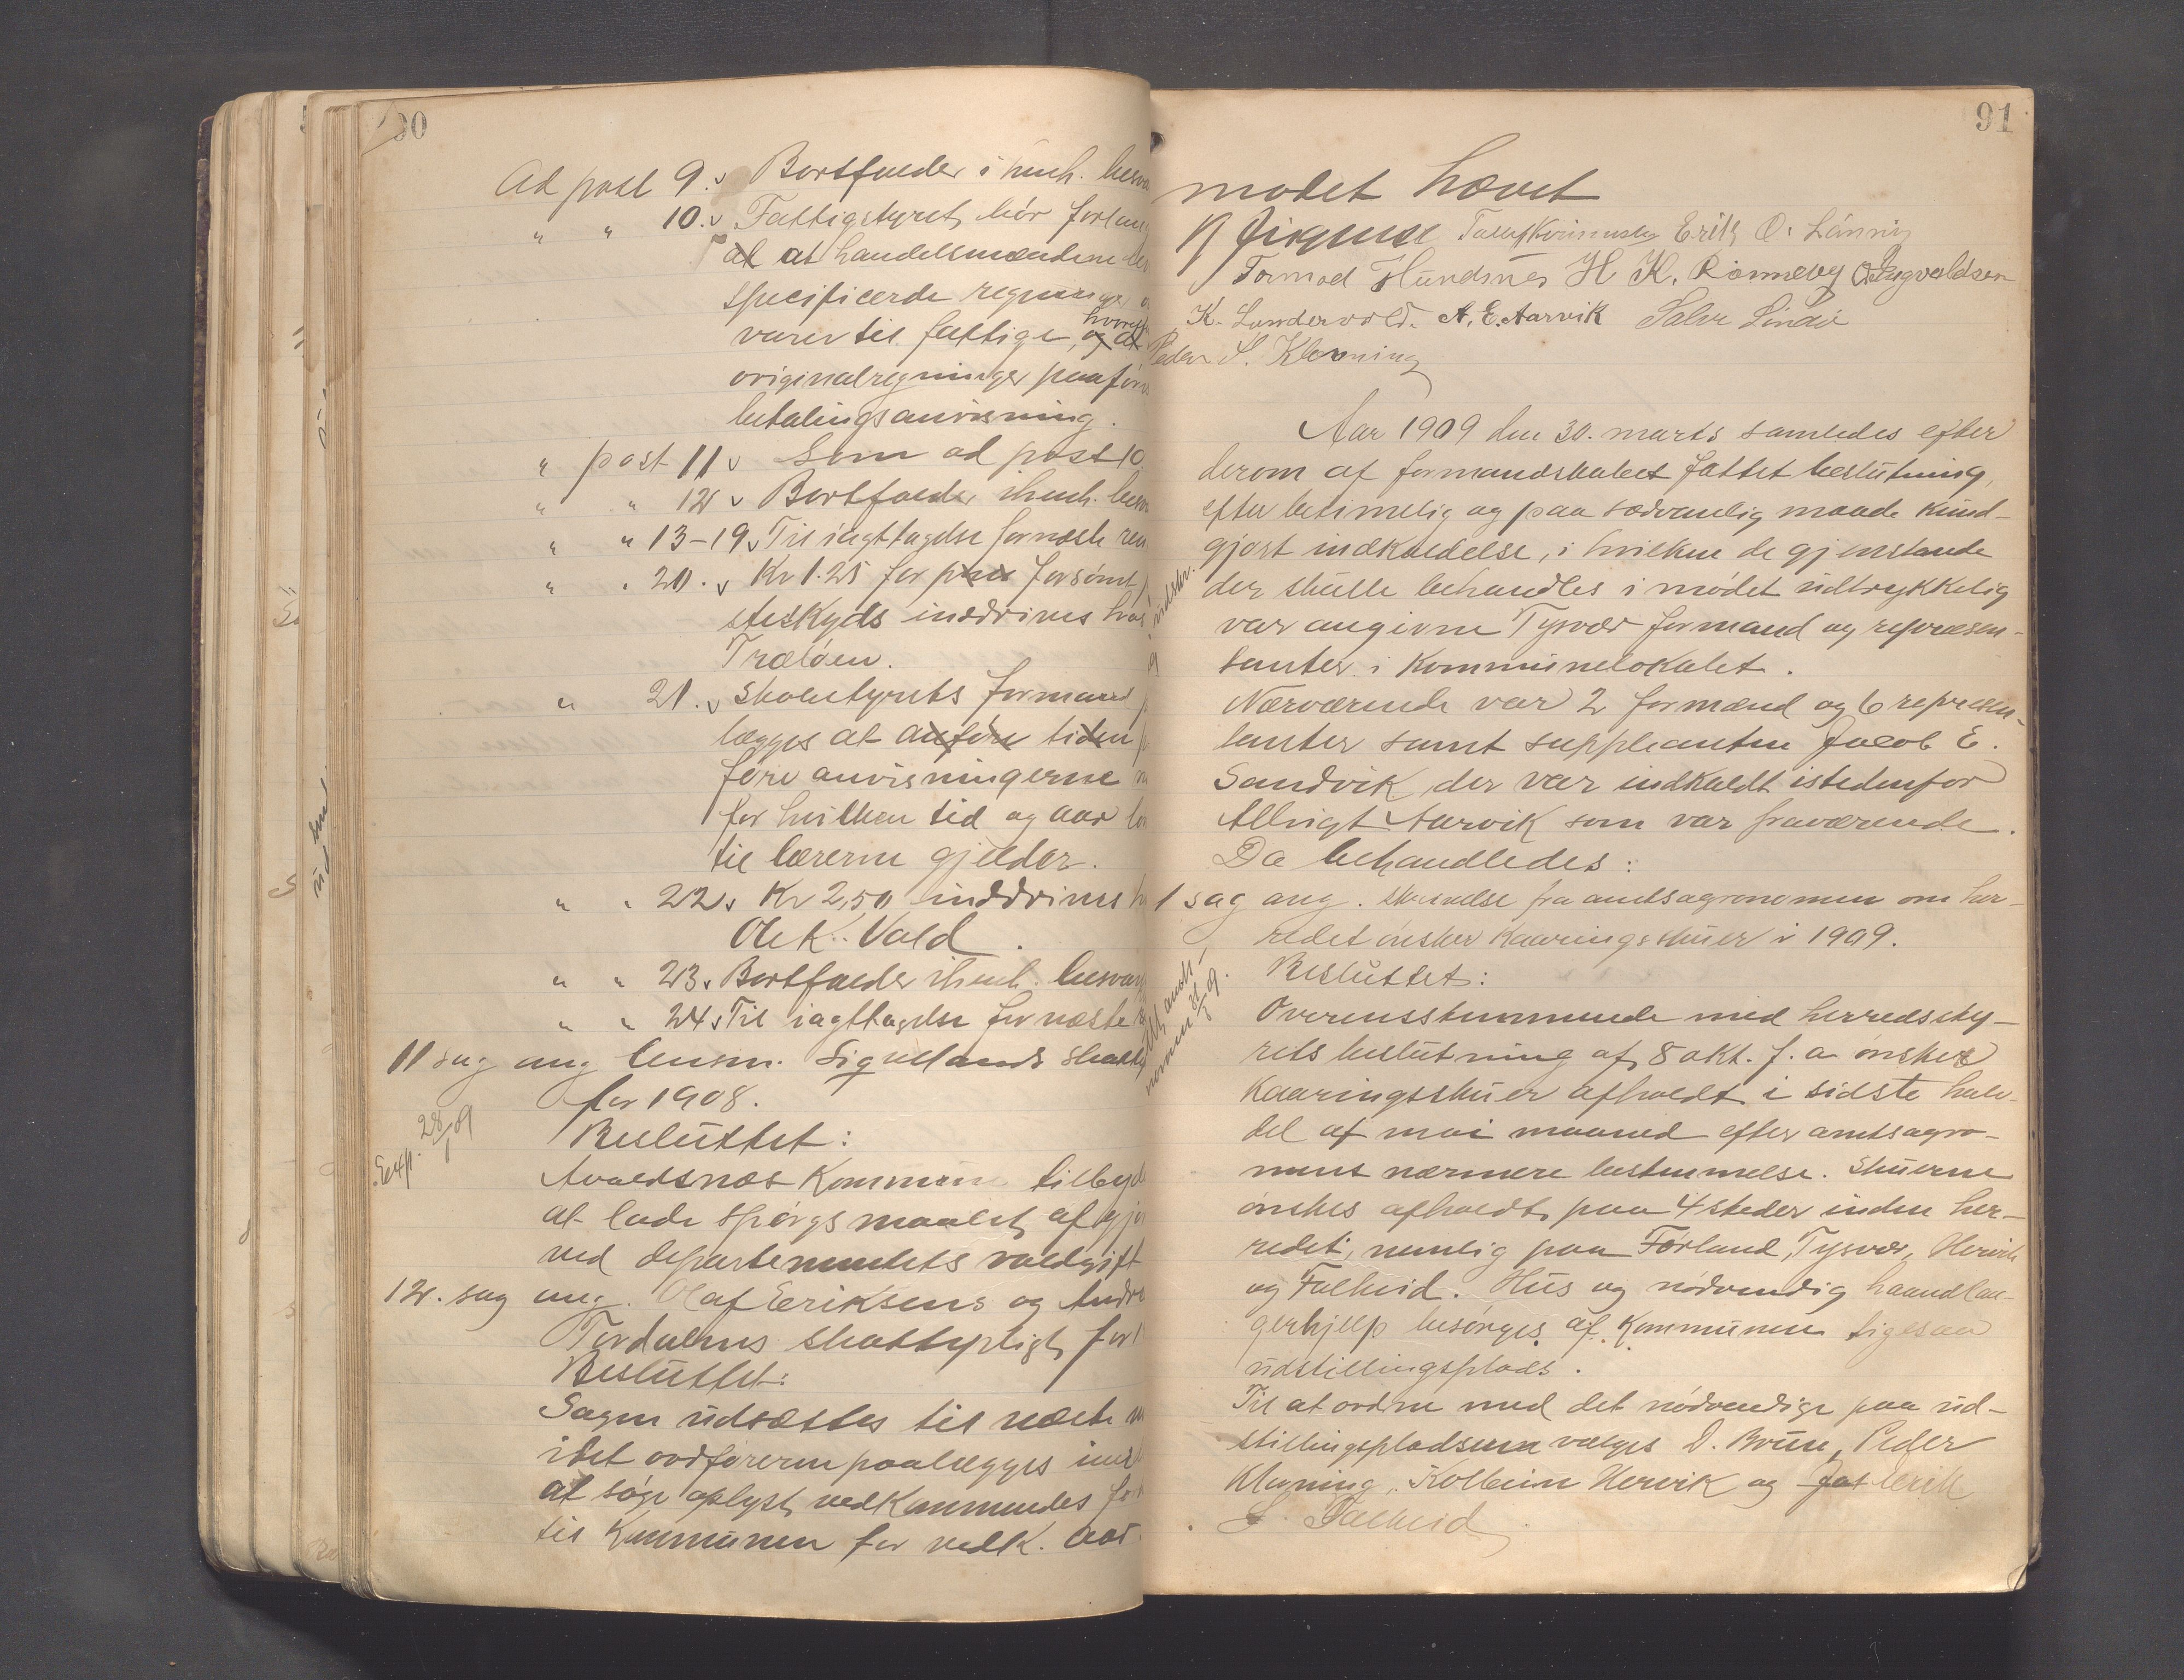 90
Ad post 9. Bortfalder i henh. besva
" " 10. Fattigstyret bör forlan
at at handelsmændene
specificerde regninger
varer til fattige, og at
originalregninger paaföres
betalingsanvisning.
" post 11 Som ad post 10
" " 12 Bortfalder i henh. besva
" " 13-19 Til iagttagelse for næste rev
" " 20. Kr 1.25 for forsömt
steskyds inddrives hos
Trælöen.
" 21. Skolestyrets formand
lægges at anföre tiden
före anvisningerne
for hvilken tid og aar lön
til lærerne gjelder.
" " 22. Kr 2,50 inddrives h
Ole K. Vold.
" " 23. Bortfalder i henh. besvar
" " 24. Til iagttagelse for næste r
11 sag ang lensm. Siqvelands skattepl
for 1908.
Exp. 28/1 09
Besluttet:
Avaldsnæs Kommune tilbyd
at lade spörgsmaalet afgjör
ved departementets voldgift
12. sag ang. Olaf Eriksens og Andr
Tordalens skattepligt for 1
Besluttet:
Sagen udsættes til næste m
idet ordföreren paalægges imid
at söge oplyst vedkommendes for
til Kommunen for vedk. aar.
91
mödet hævet
Erik O. Lönning
Tormod Hundsnes H K. Rönnevig O. Ingvaldsen
K. Sondervold. A. E. Aarvik Salve Lindö
Peder S. Klovning
Aar 1909 den 30. marts samledes efter
derom af formandskabet fattet beslutning,
efter betimelig og paa sædvanlig maade kund-
gjort indkaldelse, i hvilken de gjenstande
der skulle behandles i mødet udtrykkelig
var angivne Tysvær formand og repræsen-
tanter i Kommunelokalet.
Nærværende var 2 formænd og 6 repræsen-
tanter samt suppleanten Jacob E.
Sandvik der var indkaldt istedenfor
Albrigt Aarvik som var fraværende.
Da behandledes:
1 sag ang. skrivelse fra amtsagronomen om her-
redet önsker Kaaringsskuer i 1909.
Besluttet:
Overensstemmende med herredssty-
rets beslutning af 8 okt. f. a. önskes
Kaaringsskuer afholdt i sidste halv-
del af mai maaned efter amtsagro-
mens nærmere bestemmelse. Skuerne
önskes afholdt paa 4 steder inden her-
redet, nemlig paa Förland, Tysvær, Hervik
og Falheid. Hus og nödvendig haandlan-
gerhjelp besörges af Kommunen ligesaa
udstillingsplads.
Til at ordne med det nödvendige paa ud-
stillingspladsene vælges D. Brune, Peder
Klovning, Kolbein Hervik og Jos Erik
L. Falheid